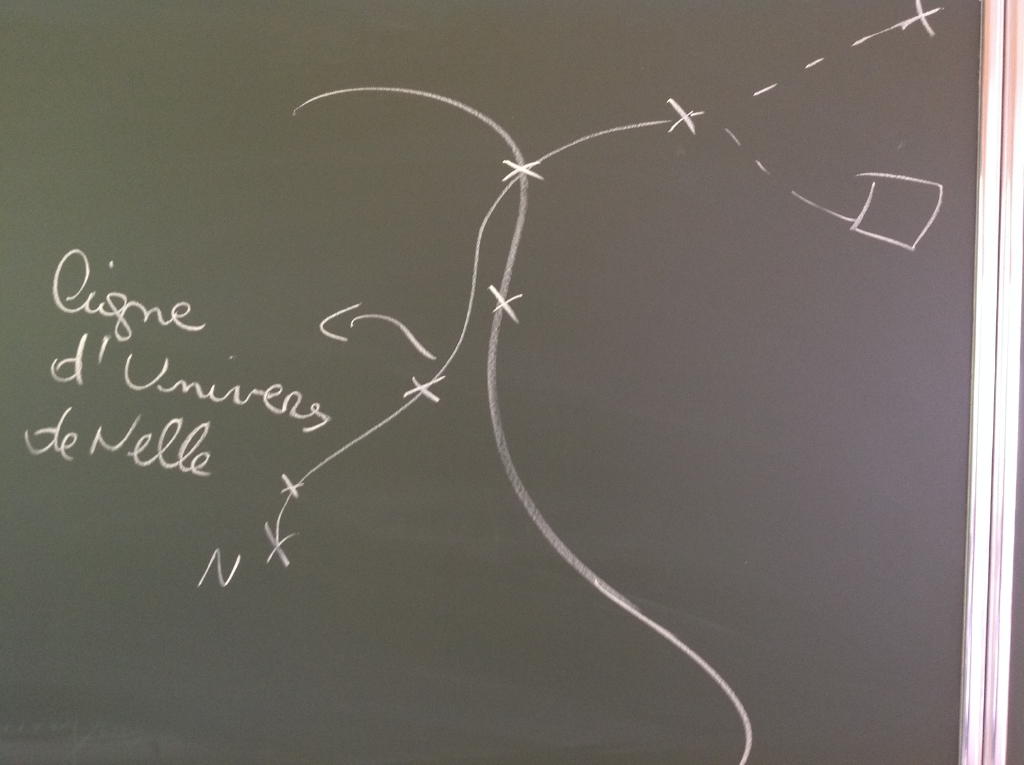 Ligne
d'Univers
de Nelle
N